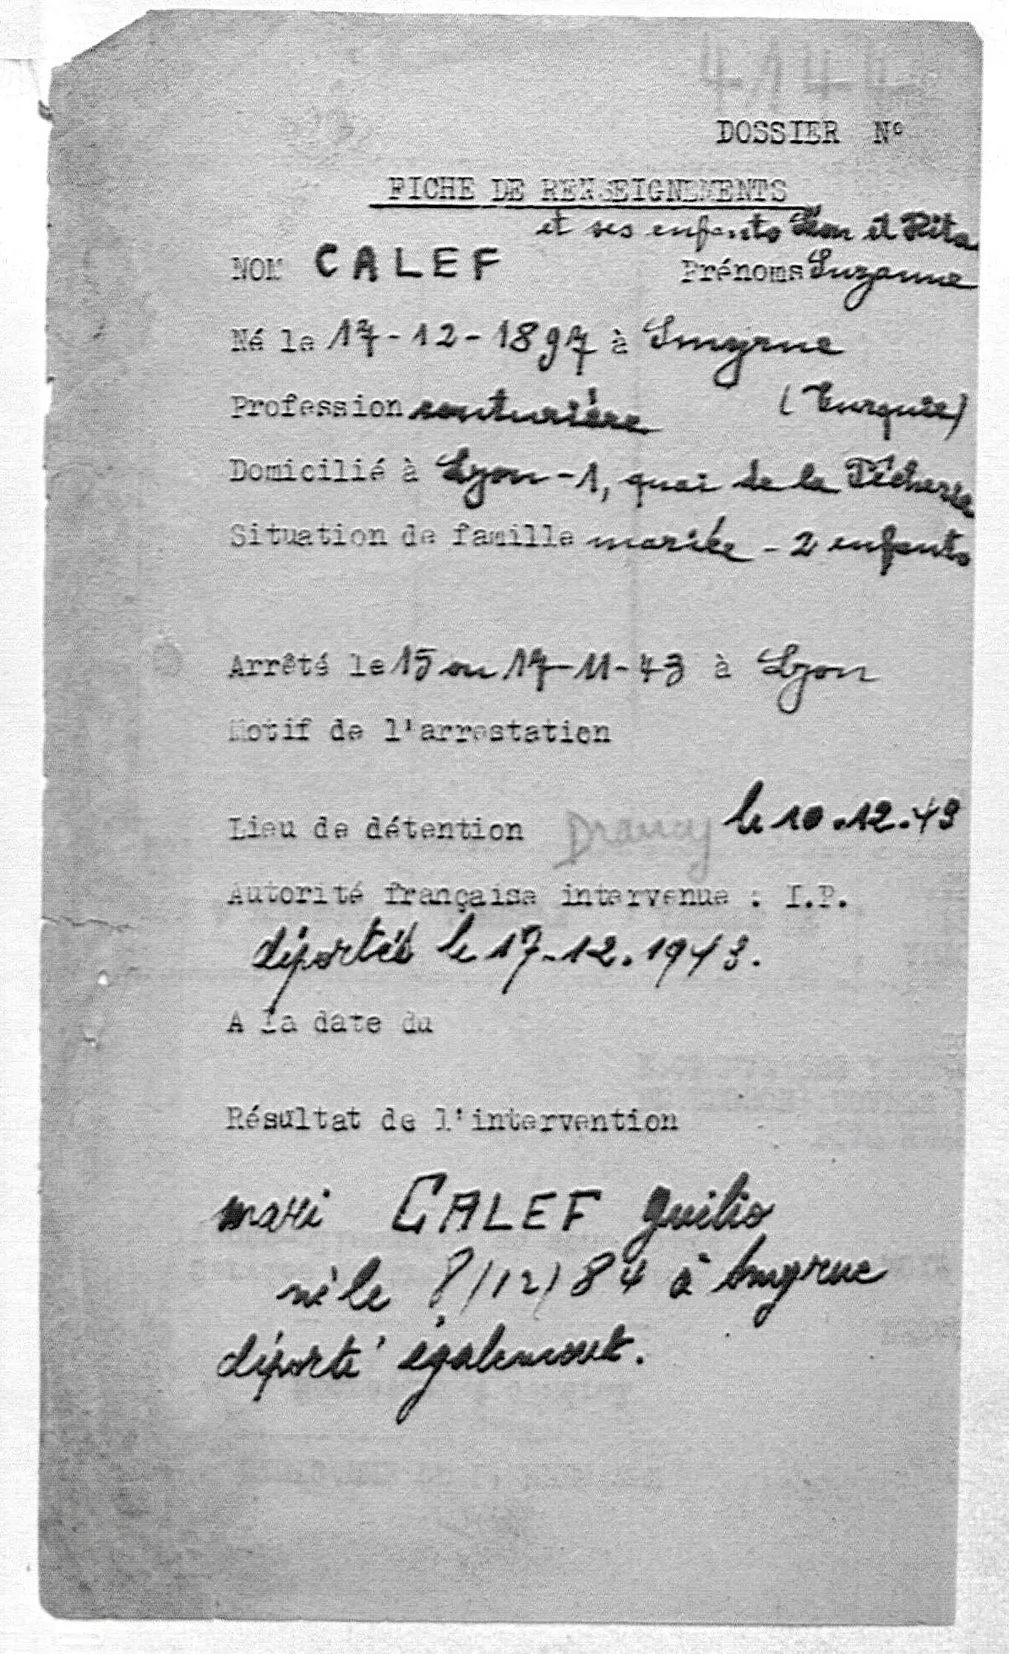 4144
DOSSIER N°
FICHE DE RENSEIGNEMENTS
et ses enfants Léon et Rita
NOM CALEF Prénoms Suzanne
Né le 17-12-1897 à Smyrne
Profession couturière (Turquie)
Domicilié à Lyon-1, quai de la Pêcherie
Situation de famille mariée - 2 enfants
Arrêté le 15 ou 17-11-43 à Lyon
Motif de l'arrestation
Lieu de détention Drancy le 10.12.43
Autorité française intervenue : I.P.
déportés le 17-12.1943.
A la date du
Résultat de l'intervention
mari CALEF Guilio
né le 8/12/84 à Smyrne
déporté également.